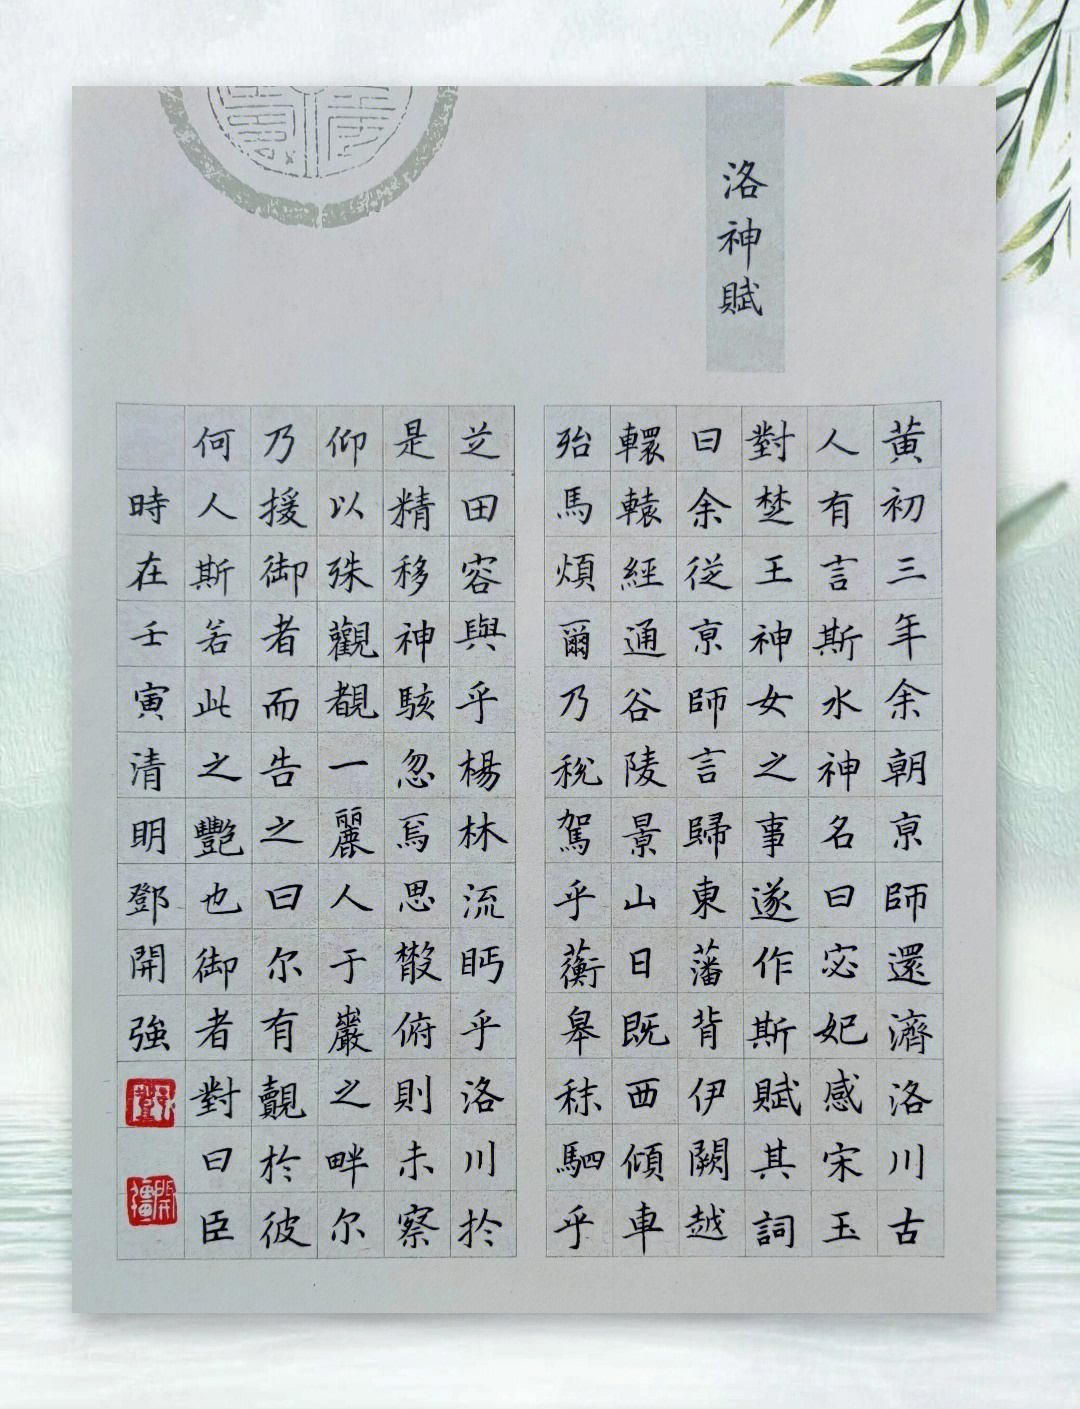 洛神賦
黃初三年余朝亰師還濟洛川古
人有言斯水神名曰宓妃感宋玉
對楚王神女之事遂作斯賦其詞
曰余從亰師言歸東藩背伊闕越
轘轅經通谷陵景山日既西傾車
殆馬煩爾乃稅駕乎蘅皋秣駟乎
芝田容與乎楊林流眄乎洛川於
是精移神駭忽焉思散俯則未察
仰以殊觀覩一麗人于巖之畔尔
乃援御者而告之曰尔有覿於彼
何人斯若此之豔也御者對曰臣
時在壬寅清明鄧開強